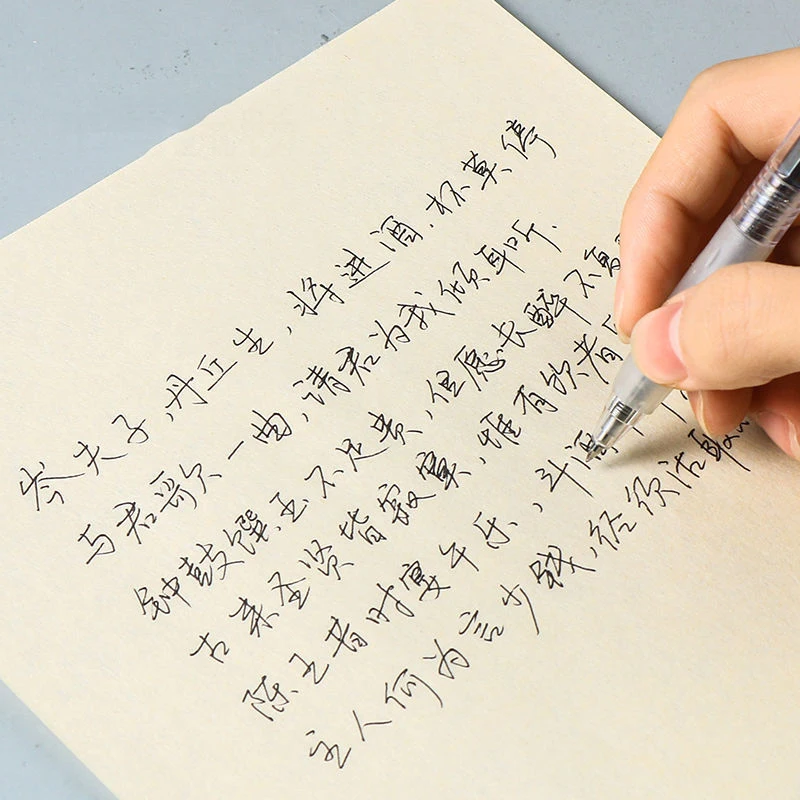 岑夫子,丹丘生,将进酒.杯莫停
与君歌一曲,请君为我倾耳听.
钟鼓馔玉不足贵,但愿长醉不
古来圣贤皆寂寞,惟有饮者
陈王昔时宴平乐,斗酒
主人何为言少钱,径须沽取